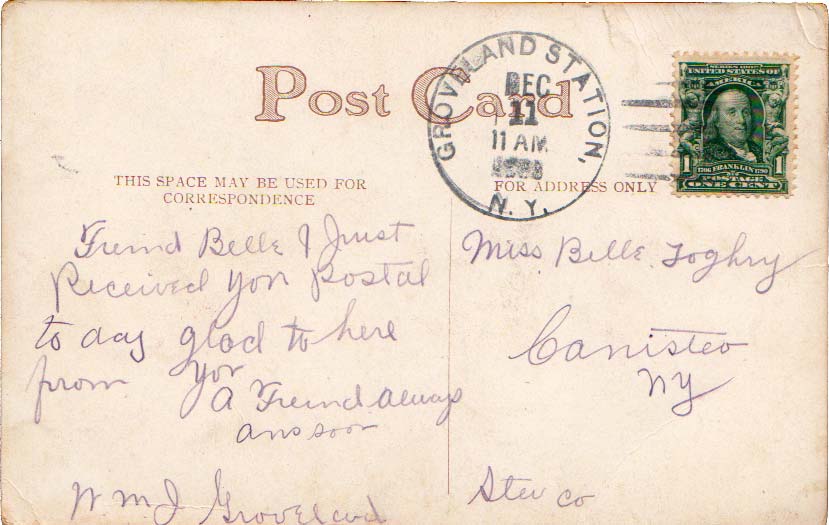 Post Card
GROVELAND STATION,
DEC
11
11 AM
N.Y.
SERIES 1902
UNITED STATES OF
AMERICA
1 1706 FRANKLIN 1790 1
POSTAGE
ONE CENT
THIS SPACE MAY BE USED FOR
CORRESPONDENCE
FOR ADDRESS ONLY
Freind Belle I Just
Received your Postal
to day glad to here
from you
A Freind always
ans soon
W m J Groveland
Miss Belle
Canisteo
NY
Steu co